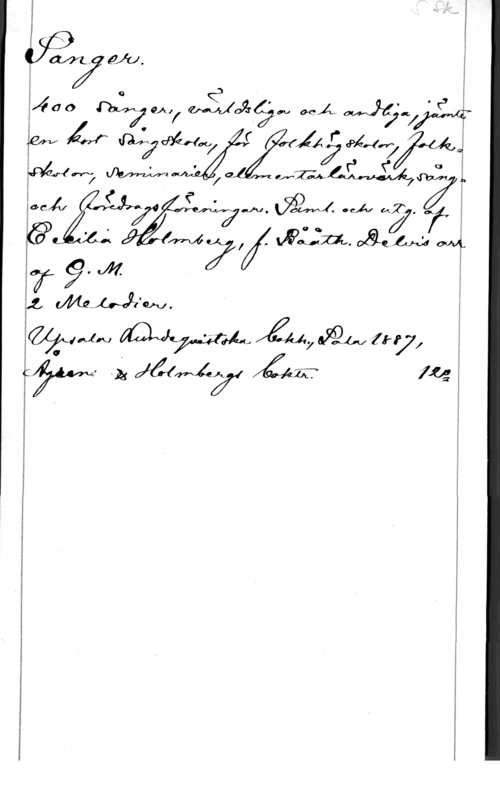 Sånger.
400 sånger, världsliga och andliga, jämte
en kort sångskola, för folkhögskolor, folk-
skolor, seminarier, elementarläroverk, sång-
och föredragsföreningar. Saml. och utg. af
Cecilia Holmberg, f. Bååth. Delvis arr.
af G. M.
2 Melodier.
Upsala Lundequistska bokh., Sala 1887,
Ågren & Holmbergs boktr. 12º